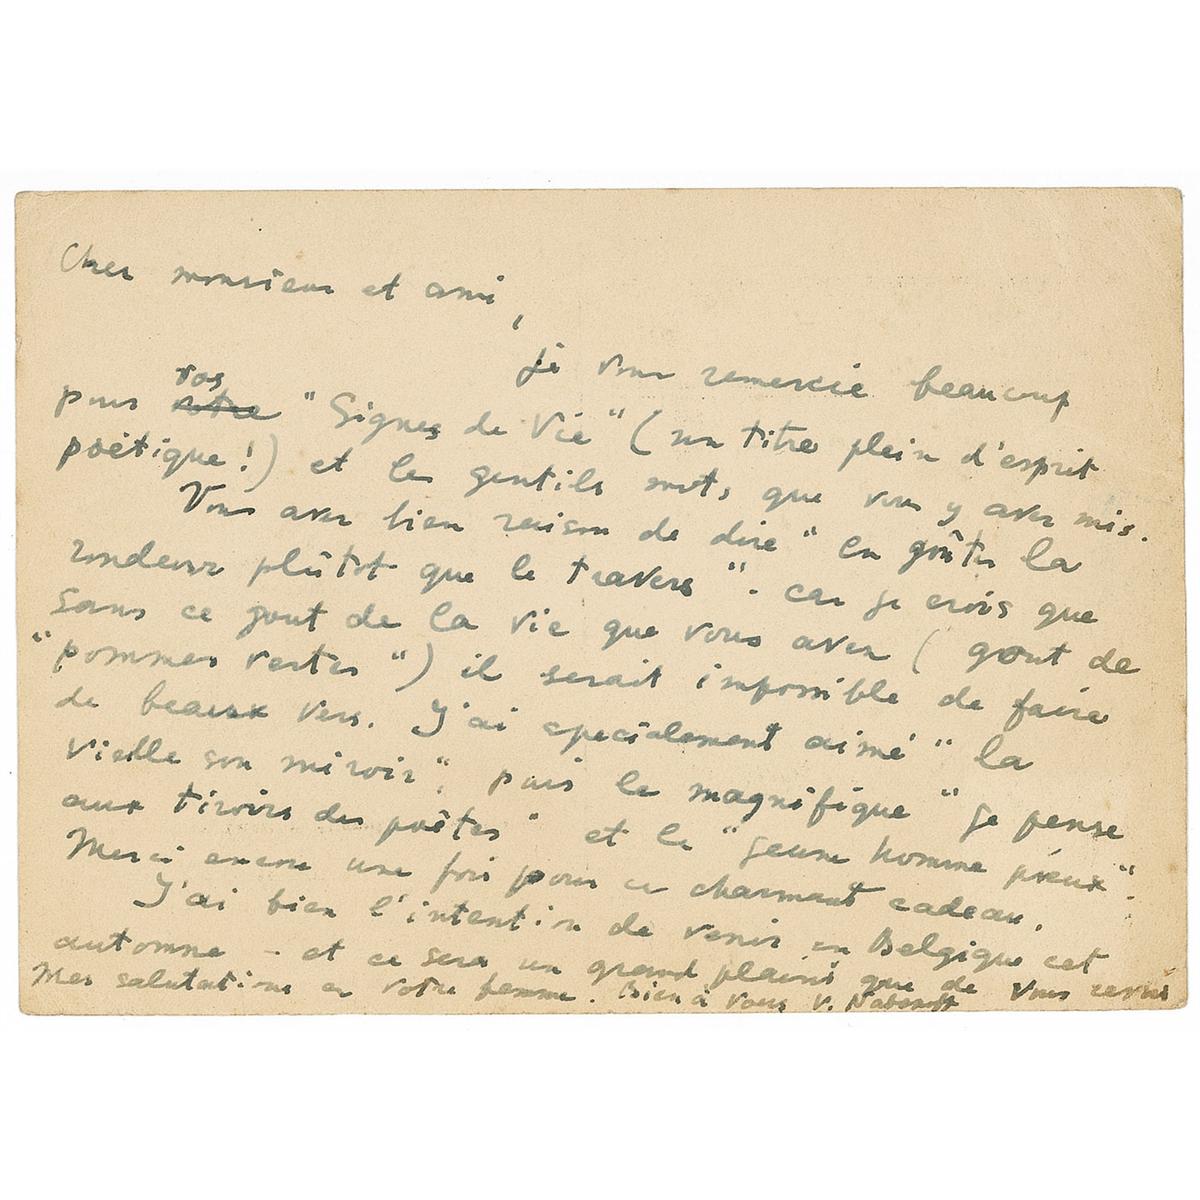 Cher monsieur et ami,
je vous remercie beaucoup
pour vos votre "Signes de Vie" (un titre plein d'esprit
poëtique!) et les gentils mots que vous y avez mis.
Vous avez bien raison de dire "en goûter la
rondeur plûtot que le travers". car je crois que
sans ce gout de la vie que vous avez (gout de
"pommes vertes") il serait impossible de faire
de beaux vers. J'ai specialement aimé "la
vielle son miroir", puis le magnifique "je pense
aux tiroirs des poêtes" et le "jeune homme pieux".
Merci encore une fois pour ce charmant cadeau.
J'ai bien l'intention de venir en Belgique cet
automne - et ce sera un grand plaisir que de vous revoir
Mes salutations a votre femme. Bien à vous V. Nabokoff